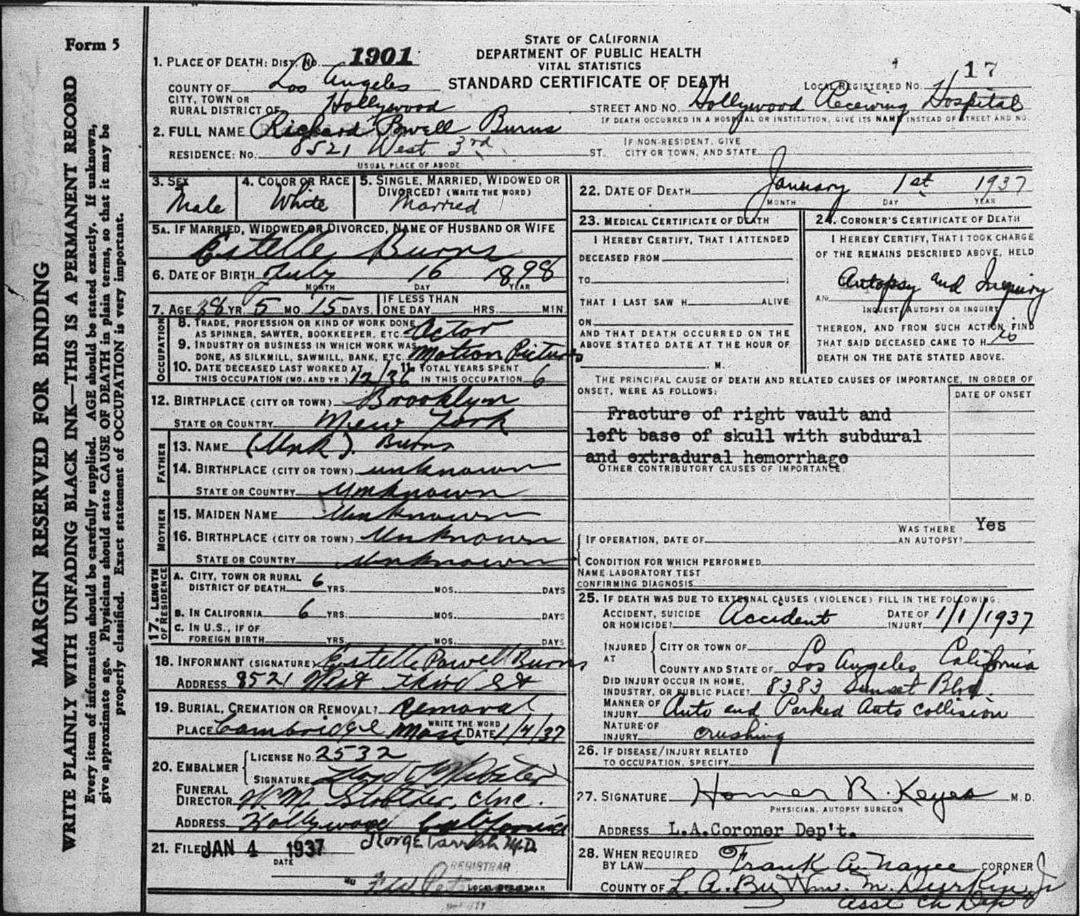 Form 5
STATE OF CALIFORNIA
DEPARTMENT OF PUBLIC HEALTH
VITAL STATISTICS
STANDARD CERTIFICATE OF DEATH
1. PLACE OF DEATH: DIST. NO. 1901
LOCAL REGISTERED NO. 17
COUNTY OF Los Angeles
CITY, TOWN OR
RURAL DISTRICT OF Hollywood
STREET AND NO. Hollywood Receiving Hospital
IF DEATH OCCURRED IN A HOSPITAL OR INSTITUTION, GIVE ITS NAME INSTEAD OF STREET AND NO.
2. FULL NAME Richard Powell Burns
RESIDENCE: NO. 8521 West 3rd ST.
IF NON-RESIDENT, GIVE
CITY OR TOWN, AND STATE
USUAL PLACE OF ABODE
3. SEX Male
4. COLOR OR RACE White
5. SINGLE, MARRIED, WIDOWED OR
DIVORCED? (WRITE THE WORD)
Married
5A. IF MARRIED, WIDOWED OR DIVORCED, NAME OF HUSBAND OR WIFE
Estelle Burns
6. DATE OF BIRTH July 16 1898
MONTH DAY YEAR
7. AGE 38 YR. 5 MO. 15 DAYS.
IF LESS THAN
ONE DAY HRS. MIN.
OCCUPATION
8. TRADE, PROFESSION OR KIND OF WORK DONE
AS SPINNER, SAWYER, BOOKKEEPER, ETC. Actor
9. INDUSTRY OR BUSINESS IN WHICH WORK WAS
DONE, AS SILKMILL, SAWMILL, BANK, ETC. Motion Pictures
10. DATE DECEASED LAST WORKED AT
THIS OCCUPATION (MO. AND YR.) 12/36
11. TOTAL YEARS SPENT
IN THIS OCCUPATION 6
12. BIRTHPLACE (CITY OR TOWN) Brooklyn
STATE OR COUNTRY New York
FATHER
13. NAME (Unk). Burns
14. BIRTHPLACE (CITY OR TOWN) unknown
STATE OR COUNTRY Unknown
MOTHER
15. MAIDEN NAME Unknown
16. BIRTHPLACE (CITY OR TOWN) Unknown
STATE OR COUNTRY Unknown
17. LENGTH
OF RESIDENCE
A. CITY, TOWN OR RURAL
DISTRICT OF DEATH 6 YRS. MOS. DAYS
B. IN CALIFORNIA 6 YRS. MOS. DAYS
C. IN U.S., IF OF
FOREIGN BIRTH YRS. MOS. DAYS
18. INFORMANT (SIGNATURE) Estelle Powell Burns
ADDRESS 8521 West Third St
19. BURIAL, CREMATION OR REMOVAL? Removal
WRITE THE WORD
PLACE Cambridge Mass DATE 1/4/37
20. EMBALMER
LICENSE NO. 2532
SIGNATURE
FUNERAL
DIRECTOR Inc.
ADDRESS Hollywood California
21. FILED JAN 4 1937
DATE
George Parrish M.D.
REGISTRAR
LOCAL REGISTRAR
22. DATE OF DEATH January 1st 1937
MONTH DAY YEAR
23. MEDICAL CERTIFICATE OF DEATH
I HEREBY CERTIFY, THAT I ATTENDED
DECEASED FROM
TO
THAT I LAST SAW H ALIVE
ON
AND THAT DEATH OCCURRED ON THE
ABOVE STATED DATE AT THE HOUR OF
M.
24. CORONER'S CERTIFICATE OF DEATH
I HEREBY CERTIFY, THAT I TOOK CHARGE
OF THE REMAINS DESCRIBED ABOVE, HELD
AN Autopsy and Inquiry
INQUEST, AUTOPSY OR INQUIRY
THEREON, AND FROM SUCH ACTION FIND
THAT SAID DECEASED CAME TO H is
DEATH ON THE DATE STATED ABOVE.
THE PRINCIPAL CAUSE OF DEATH AND RELATED CAUSES OF IMPORTANCE, IN ORDER OF
ONSET, WERE AS FOLLOWS:
DATE OF ONSET
Fracture of right vault and
left base of skull with subdural
and extradural hemorrhage
OTHER CONTRIBUTORY CAUSES OF IMPORTANCE:
WAS THERE
AN AUTOPSY? Yes
IF OPERATION, DATE OF
CONDITION FOR WHICH PERFORMED
NAME LABORATORY TEST
CONFIRMING DIAGNOSIS
25. IF DEATH WAS DUE TO EXTERNAL CAUSES (VIOLENCE) FILL IN THE FOLLOWING:
ACCIDENT, SUICIDE
OR HOMICIDE? Accident
DATE OF
INJURY 1/1/1937
INJURED
AT
CITY OR TOWN OF
COUNTY AND STATE OF Los Angeles, California
DID INJURY OCCUR IN HOME,
INDUSTRY, OR PUBLIC PLACE? 8383 Sunset Blvd.
MANNER OF
INJURY Auto and Parked Auto collision
NATURE OF
INJURY crushing
26. IF DISEASE/INJURY RELATED
TO OCCUPATION, SPECIFY
27. SIGNATURE Homer R. Keyes M.D.
PHYSICIAN, AUTOPSY SURGEON
ADDRESS L.A.Coroner Dep't.
28. WHEN REQUIRED
BY LAW Frank A. Nance CORONER
COUNTY OF L. A. By Wm. M. Durkin, Jr
asst Ch Dep
MARGIN RESERVED FOR BINDING
WRITE PLAINLY WITH UNFADING BLACK INK—THIS IS A PERMANENT RECORD
Every item of information should be carefully supplied. AGE should be stated exactly. If unknown,
give approximate age. Physicians should state CAUSE OF DEATH in plain terms, so that it may be
properly classified. Exact statement of OCCUPATION is very important.